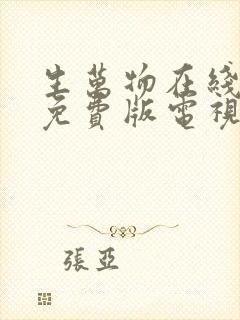 生萬物在綫
免費版電視
張亞